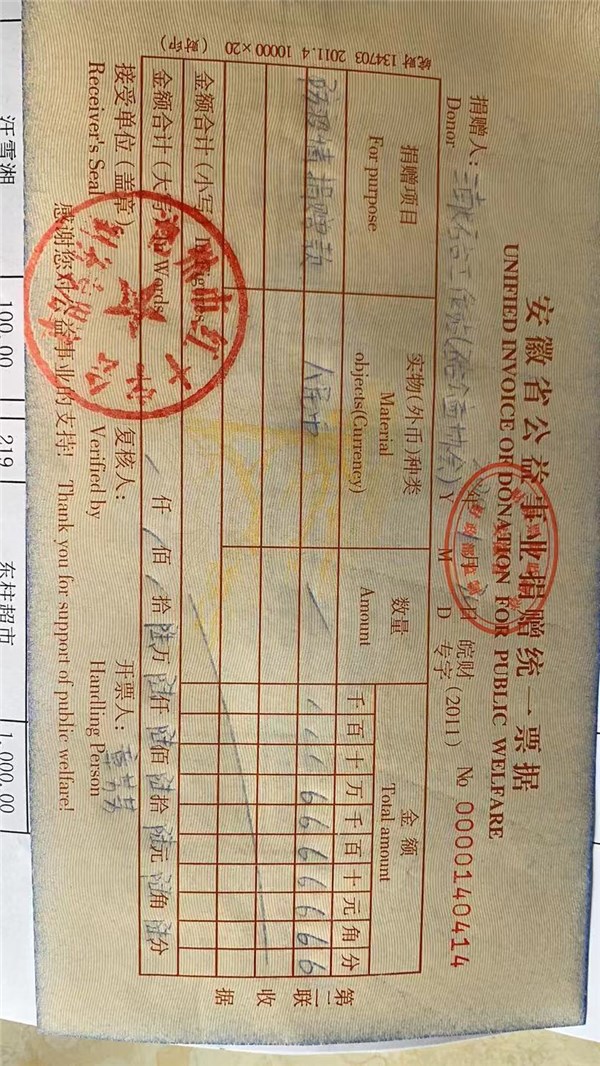 安徽省公益事业捐赠统一票据
UNIFIED INVOICE OF DONATION FOR PUBLIC WELFARE
捐赠人：
Donor
年 月 日
Y M D
皖财
专字 (2011)
No 0000140414
捐赠项目
For purpose
实物(外币)种类
Material
objects(Currency)
数量
Amount
金额
Total amount
千百十万千百十元角分
防疫情捐赠款 人民币 6666666
金额合计(小写) In Figures
金额合计(大写) In Words
仟 佰 拾 陆万 陆仟 陆佰 陆拾 陆元 陆角 陆分
接受单位(盖章)
Receiver's Seal
复核人：
Verified by
开票人：
Handling Person
感谢您对公益事业的支持! Thank you for support of public welfare!
皖财 134703 2011.4 10000×20 (财印)
第二联 收据
汪雪湘 100.00 219 东柱超市 1,000.00